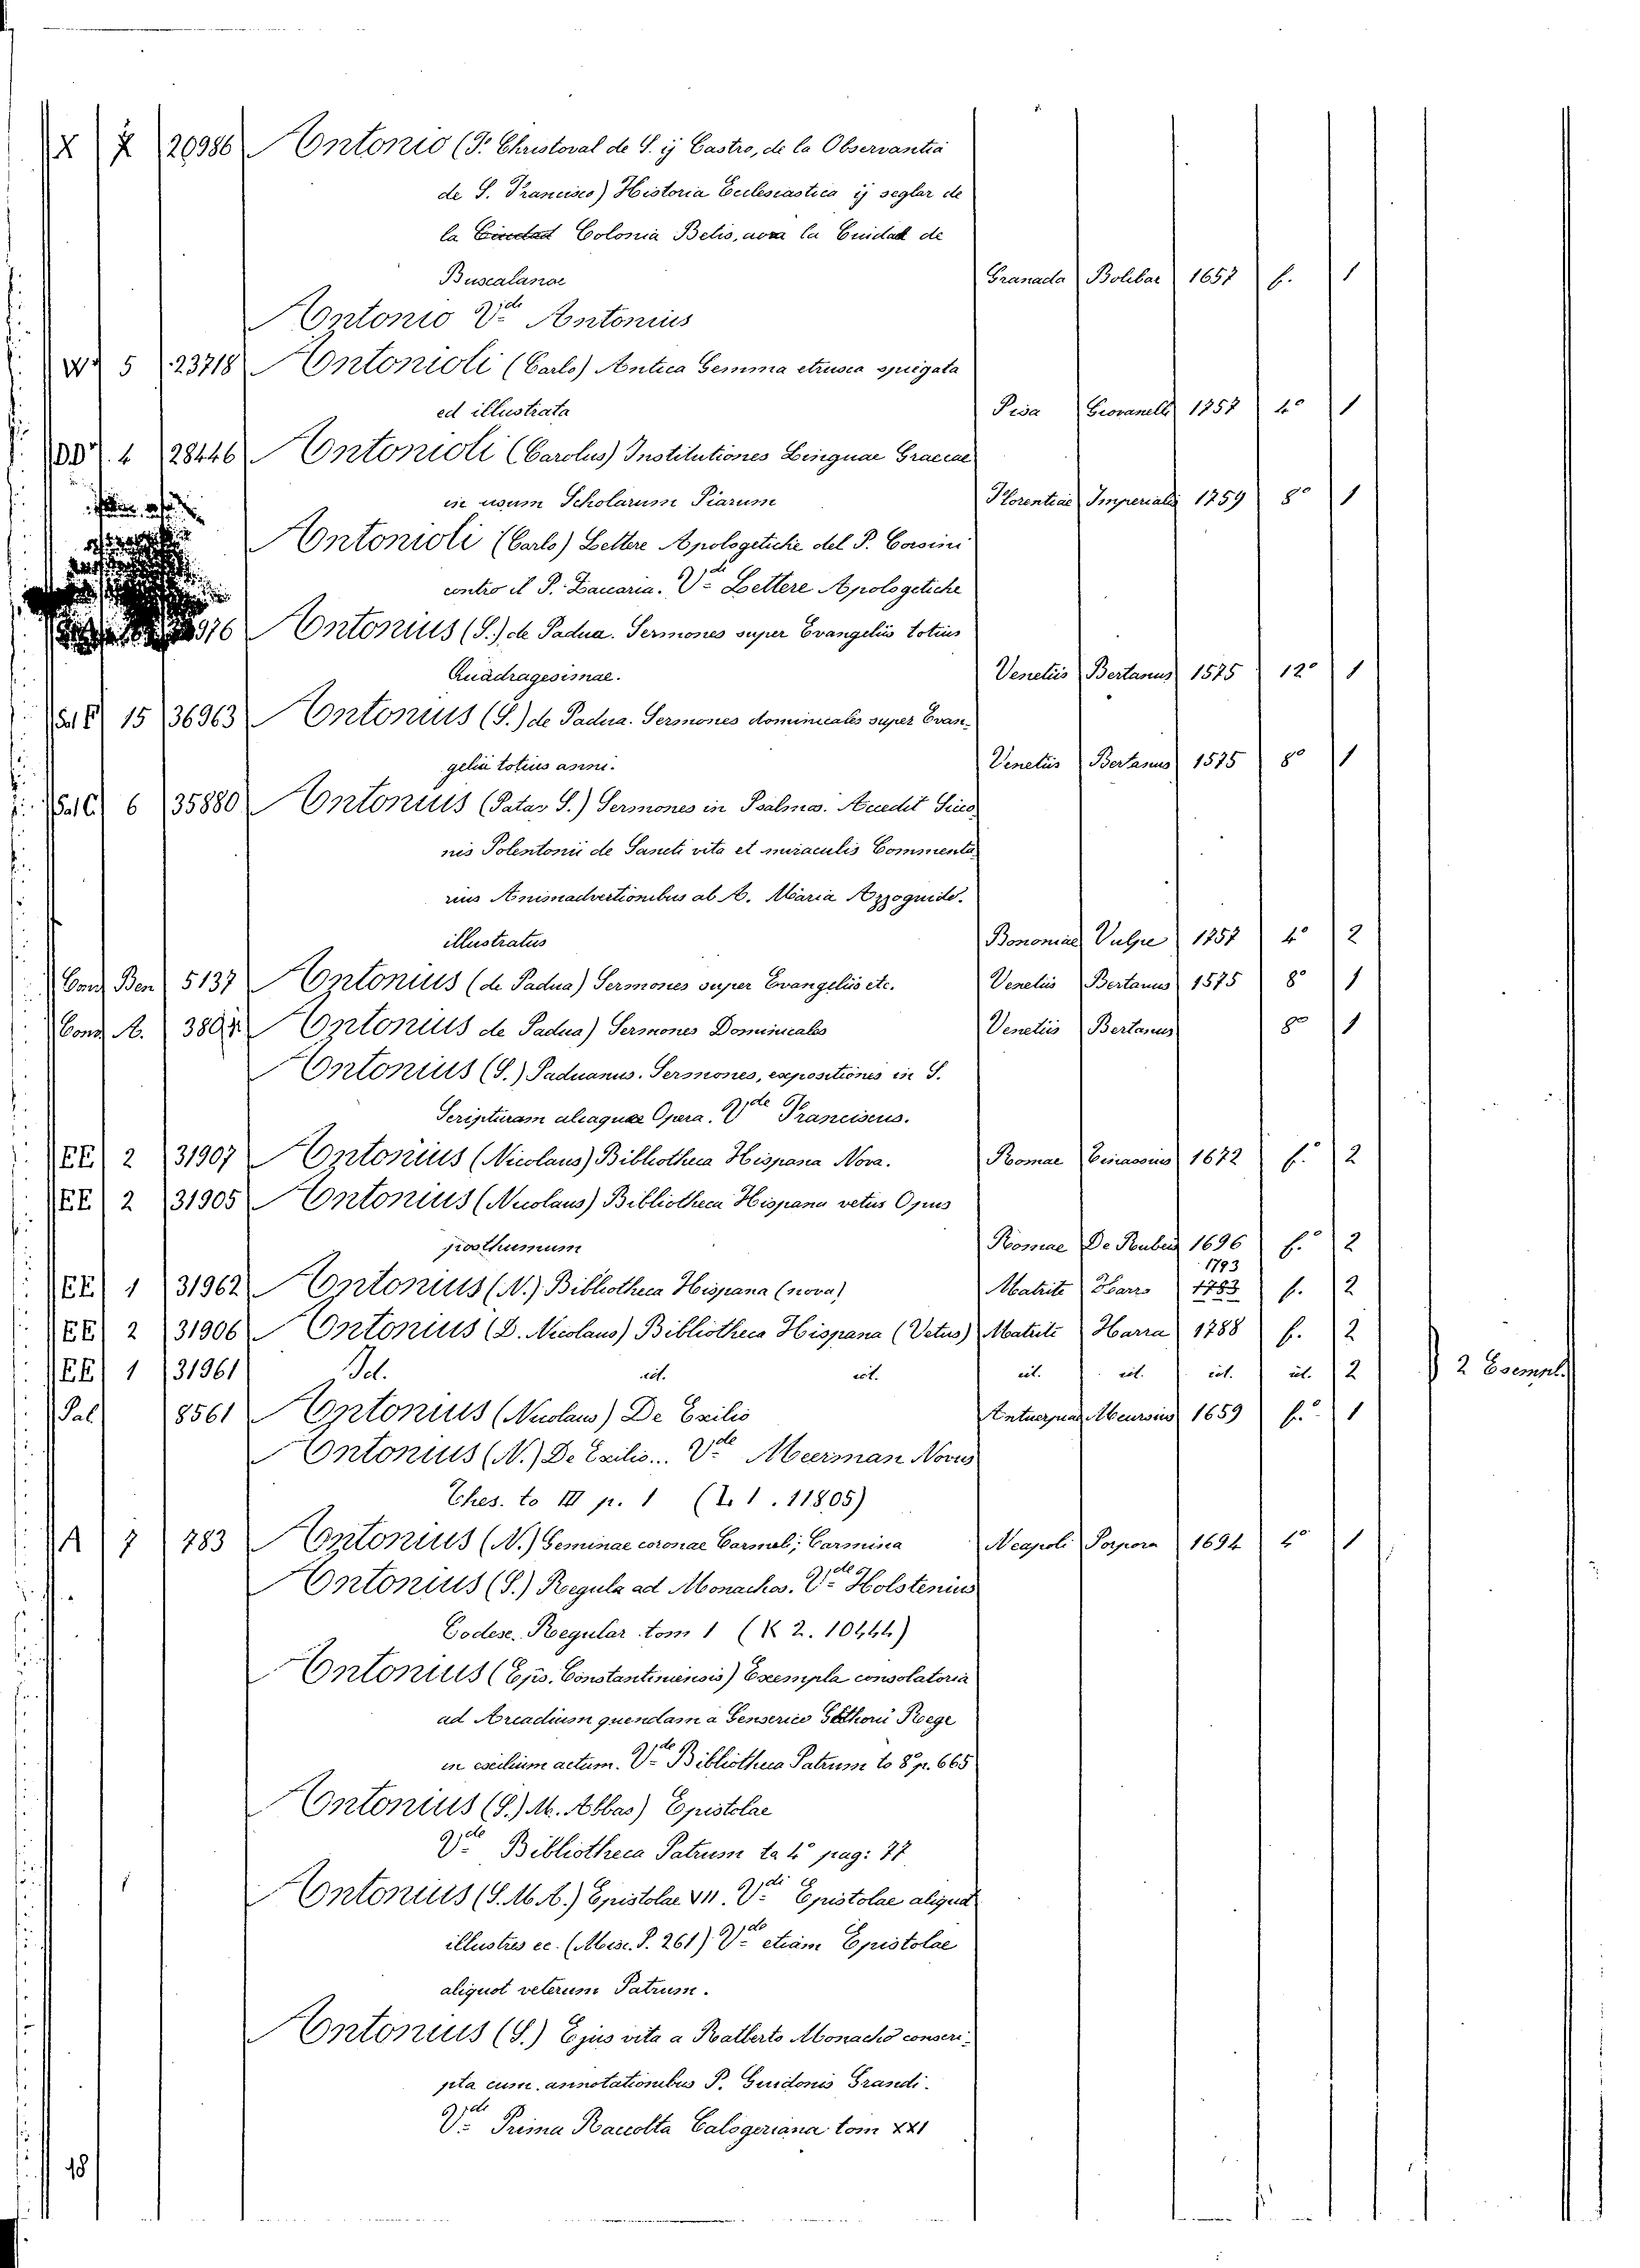 X 7 20986 Antonio (F. Christoval de S. ÿ Castro, de la Observantia
de S. Francisco) Historia Ecclesiastica ÿ seglar de
la Ciudad Colonia Betis, aora la Cuidad de
Buscalanoe Granada Bolibar 1657 f. 1
Antonio V.de Antonius
5 23718 Antonioli (Carlo) Antica Gemma etrusca spiegata
ed illustrata Pisa Giovanelli 1757 4° 1
DD 4 28446 Antonioli (Carolus) Institutiones Linguae Graecae
in usum Scholarum Piarum Florentiae Imperialis 1759 8° 1
Antonioli (Carlo) Lettere Apologetiche del P. Corsini
contro il P. Zaccaria. V.de Lettere Apologetiche
976 Antonius (S.) de Padua. Sermones super Evangeliis totius
Quadragesimae. Venetiis Bertanus 1575 12° 1
Sal E 15 36963 Antonius (S.) de Padua. Sermones dominicales super Evan-
gelia totius anni. Venetiis Bertanus 1575 8° 1
Sal C 6 35880 Antonius (Patav S.) Sermones in Psalmos. Accedit Sicco
nis Polentonii de Sancti vita et miraculis Commenta
rius Animadvertionibus ab A. Maria Azzoguido.
illustratus Bononiae Vulpe 1757 4° 2
Cons Ben 5137 Antonius (de Padua) Sermones super Evangeliis etc. Venetiis Bertanus 1575 8° 1
Cons A. Antonius de Padua) Sermones Dominicales Venetiis Bertanus 8° 1
Antonius (S.) Paduanus. Sermones, expositiones in S.
Scripturam aliaquae Opera. V.de Franciscus.
EE 2 31907 Antonius (Nicolaus) Bibliotheca Hispana Nova. Romae Tinassius 1672 f.° 2
EE 2 31905 Antonius (Nicolaus) Bibliotheca Hispana vetus Opus
posthumum Romae De Rubeis 1696 f.° 2
1793
EE 1 31962 Antonius (N.) Bibliotheca Hispana (nova) Matrite Ibarra 1783 f. 2
EE 2 31906 Antonius (D. Nicolaus) Bibliotheca Hispana (Vetus) Matrite Harra 1788 f. 2
EE 1 31961 Id. id. id. id. id. id. id. 2 2 Esempl.
Pal 8561 Antonius (Nicolaus) De Exilio Antuerpiae Meursius 1659 f.° 1
Antonius (N.) De Exilio... V.de Meerman Novus
Thes. to III p. 1 (L 1. 11805)
A 7 783 Antonius (N.) Geminae coronae Carmeli; Carmina Neapoli Porpora 1694 4° 1
Antonius (S.) Regula ad Monachos. V.de Holstenius
Codex. Regular tom 1 (K 2. 10444)
Antonius (Eps. Constantiniensis) Exempla consolatoria
ad Arcadium quendam a Genserico Gothorū Rege
in exilium actum. V.de Bibliotheca Patrum to 8° p. 665
Antonius (S.) M. Abbas) Epistolae
V.de Bibliotheca Patrum to 4° pag: 77
Antonius (S. M. A.) Epistolae VII. V.di Epistolae aliquot
illustres ec. (Misc. P. 261) V.de etiam Epistolae
aliquot veterum Patrum.
Antonius (S.) Ejus vita a Ratberto Monacho conscri-
pta cum. annotationibus P. Guidonis Grandi.
V.de Prima Raccolta Calogeriana tom XXI
18